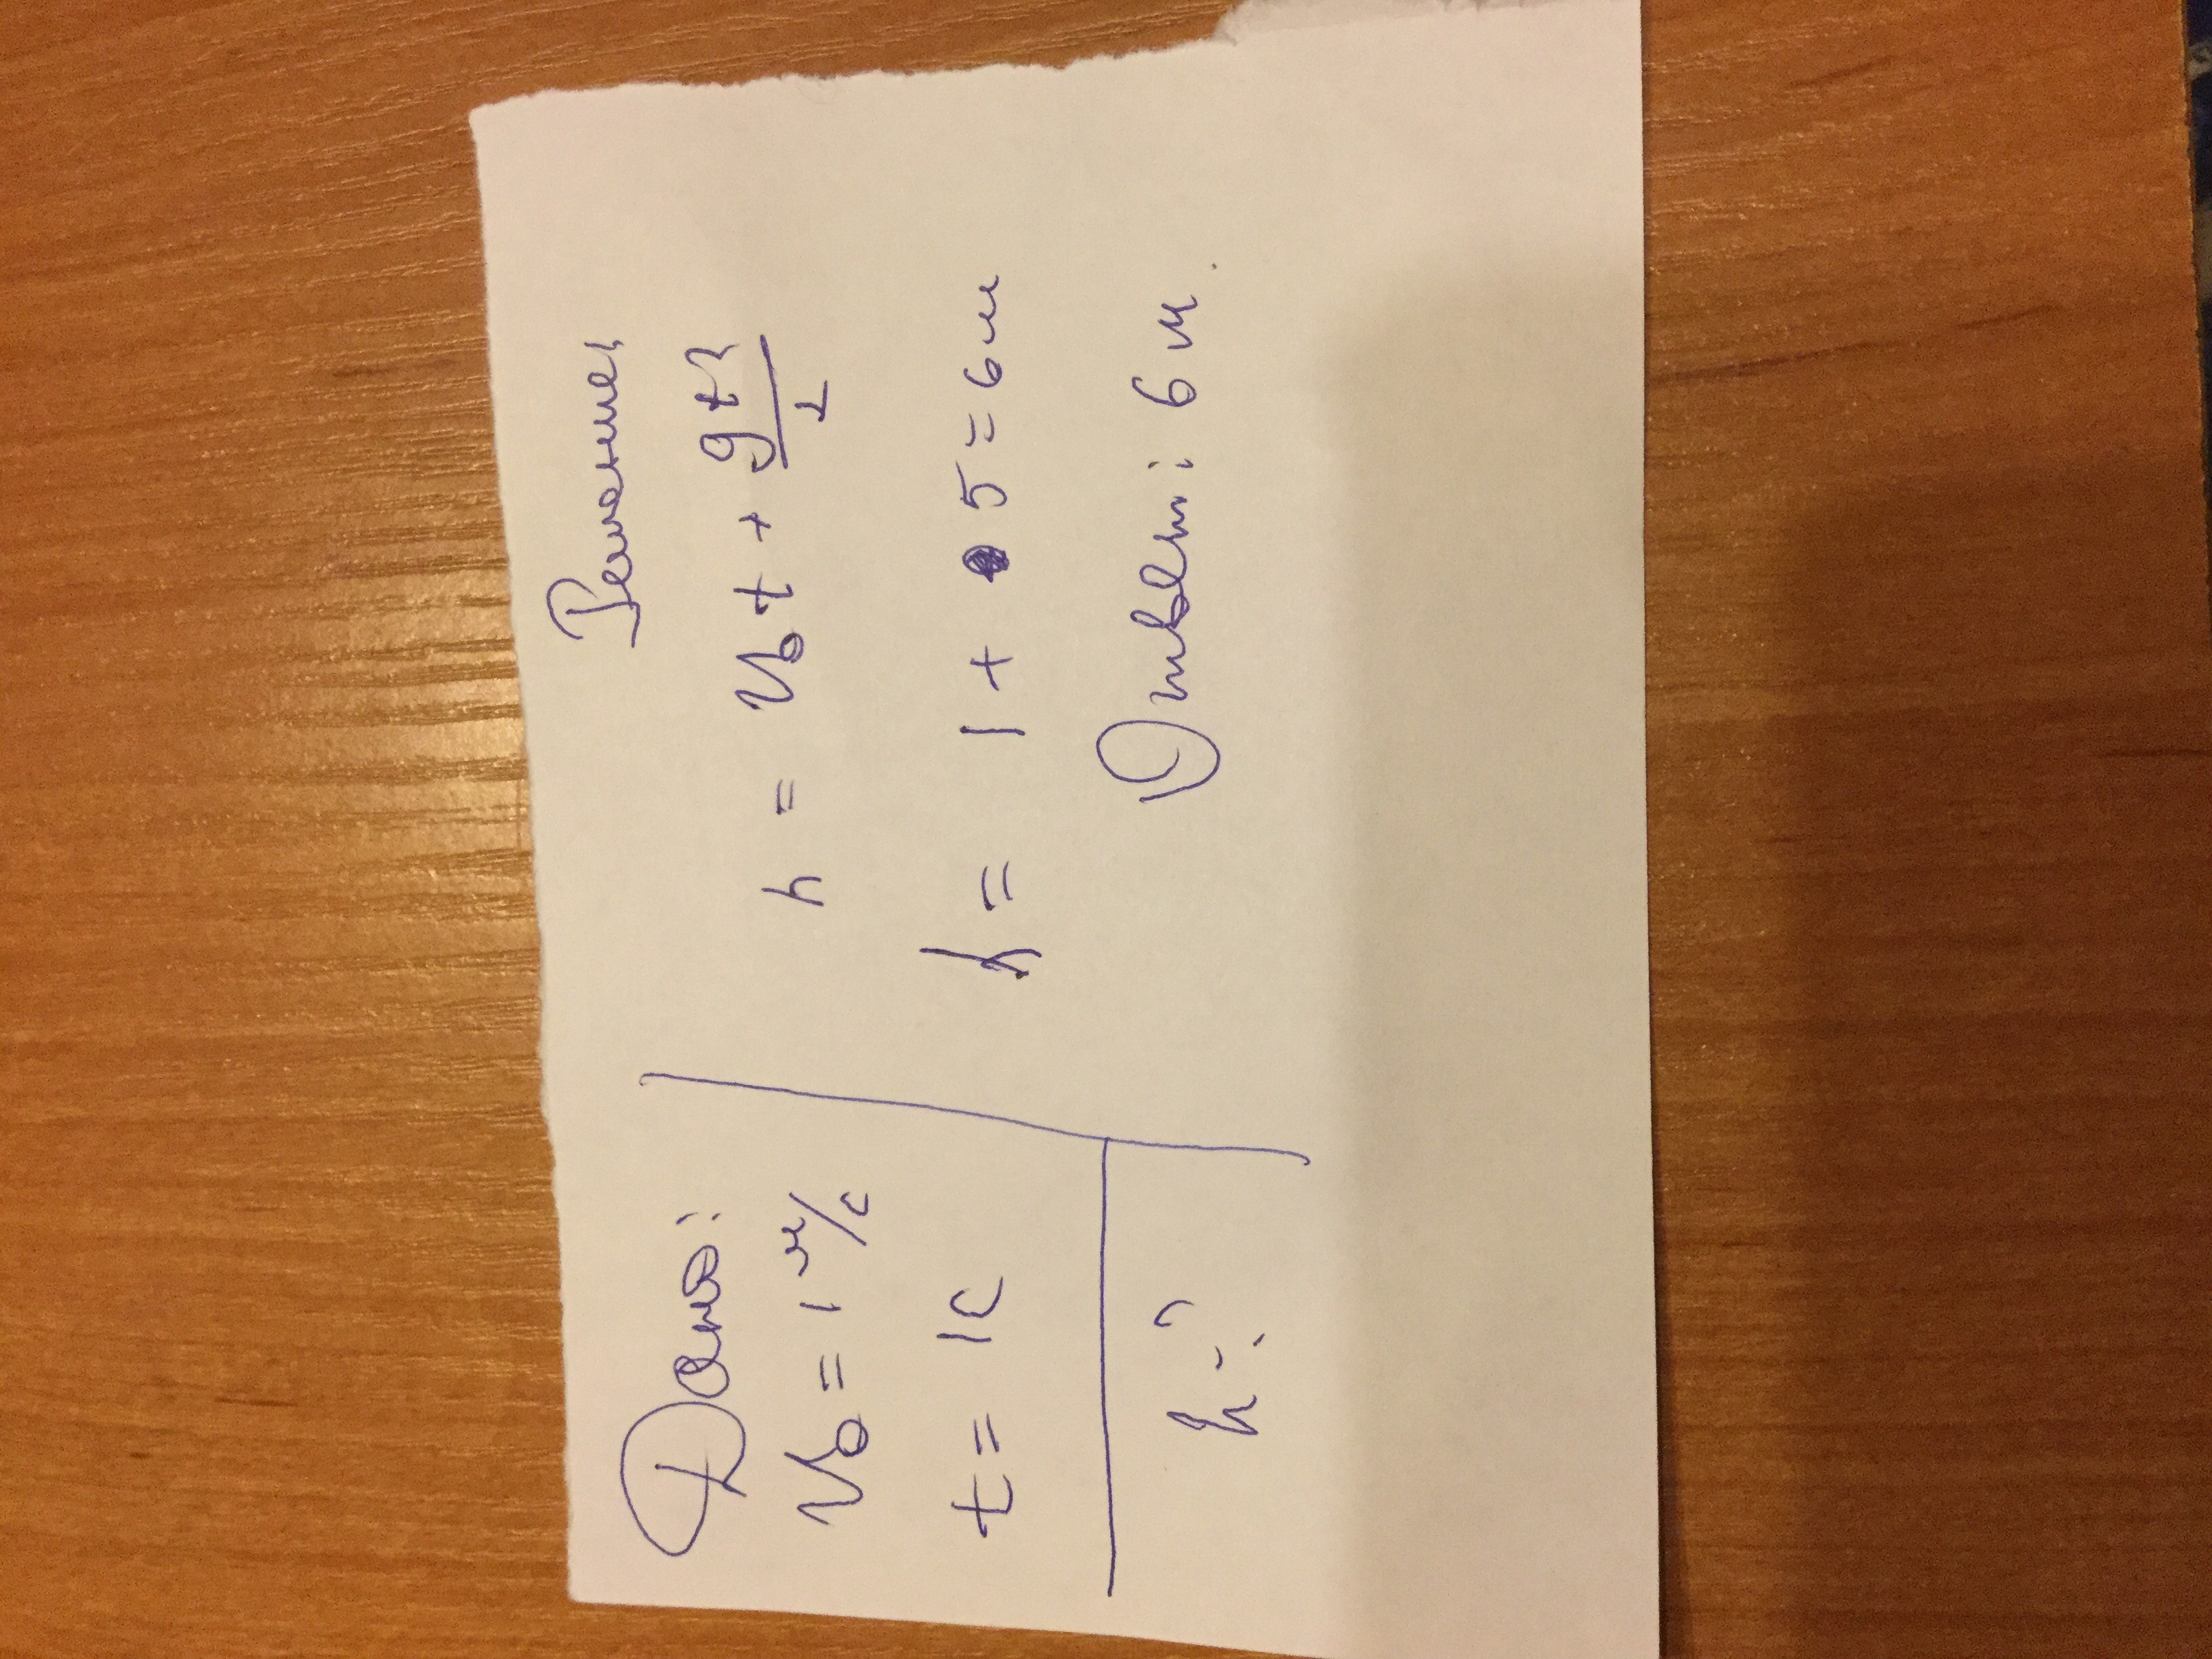 Дано:
V₀ = 1 м/с
t = 1с
h - ?
Решение:
h = V₀t + gt²/2
h = 1 + 5 = 6м
Ответ: 6м.